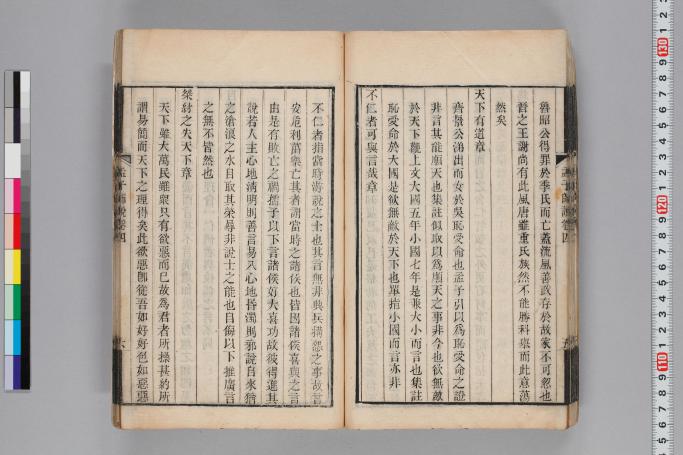 魯昭公得罪於季氏而亡蓋流風善政存於故家不可忽也
晉之王謝尚有此風唐雖重氏族然不能勝科舉而此意蕩
然矣
天下有道章
齊景公涕出而女於吳恥受命也孟子引以為恥受命之證
非言其能順天也集註似取以為順天之事非今也欲無敵
於天下觀上文大國五年小國七年是兼大小而言也集註
恥受命於大國是欲無敵於天下也單指小國而言亦非
不仁者可與言哉章
不仁者指當時游說之士也其言無非興兵搆怨之事故言
安危利菑樂亡其者謂當時之諸侯也皆因諸侯喜與之言
由是有敗亡之禍孺子以下言諸侯好大喜功故彼得進其
說若人主心地清明則善言易入心地昏濁則邪說自來猶
之滄浪之水自取其榮辱非說士之能也自侮以下推廣言
之無不皆然也
桀紂之失天下章
天下雖大萬民雖眾只有欲惡而已故為君者所操甚約所
謂易簡而天下之理得矣此欲惡即從吾如好好色如惡惡
孟子師說卷四
六